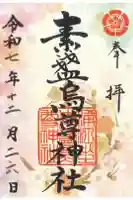 奉拝
素盞嗚尊神社
令和七年十二月二八日